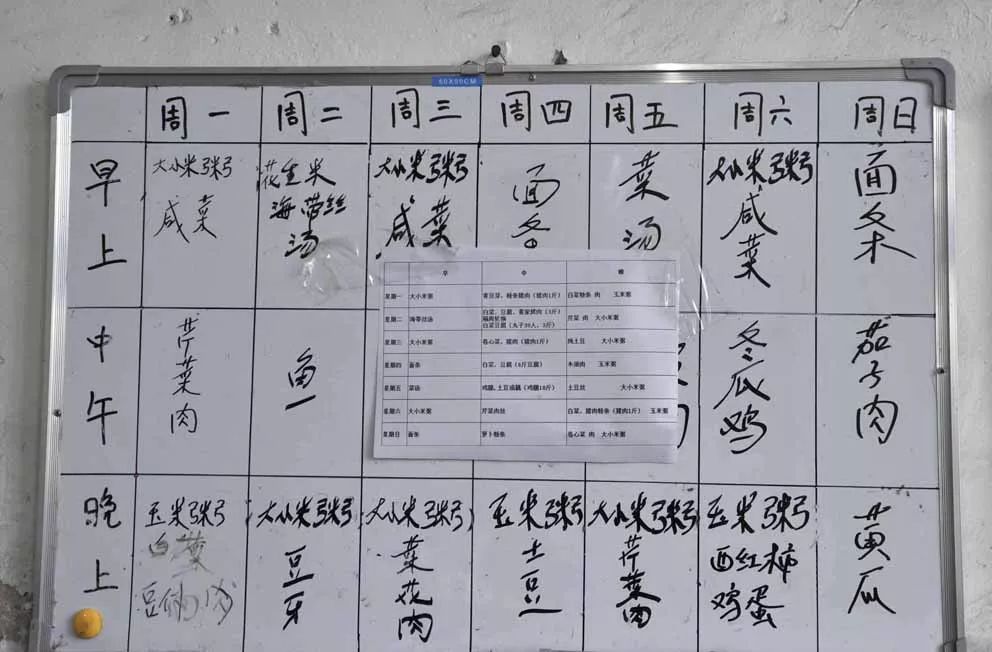 60X90CM
周一 周二 周三 周四 周五 周六 周日
早上
大小米粥
咸菜
花生米
海带丝
汤
大小米粥
咸菜
面条
菜
汤
大小米粥
咸菜
面条
中午
芹菜肉
鱼
肉
冬瓜鸡
茄子肉
晚上
玉米粥
白菜
豆腐肉
大小米粥
豆牙
大小米粥
菜花肉
玉米粥
土豆
大小米粥
芹菜肉
玉米粥
西红柿
鸡蛋
黄瓜
早 中 晚
星期一 大小米粥 青豆菜，粉条猪肉（猪肉1斤） 白菜粉条 肉 玉米粥
星期二 海带丝汤 白菜，豆腐，
白菜豆腐（丸子30人，3斤） 芹菜 肉 大小米粥
星期三 大小米粥 卷心菜，猪肉（猪肉1斤） 炖土豆 大小米粥
星期四 面条 白菜，豆腐（5斤豆腐） 木须肉 玉米粥
星期五 菜汤 鸡腿，土豆或藕（鸡腿10斤） 土豆丝 大小米粥
星期六 大小米粥 芹菜肉丝 白菜，猪肉粉条（猪肉1斤） 玉米粥
星期日 面条 萝卜粉条 卷心菜 肉 大小米粥